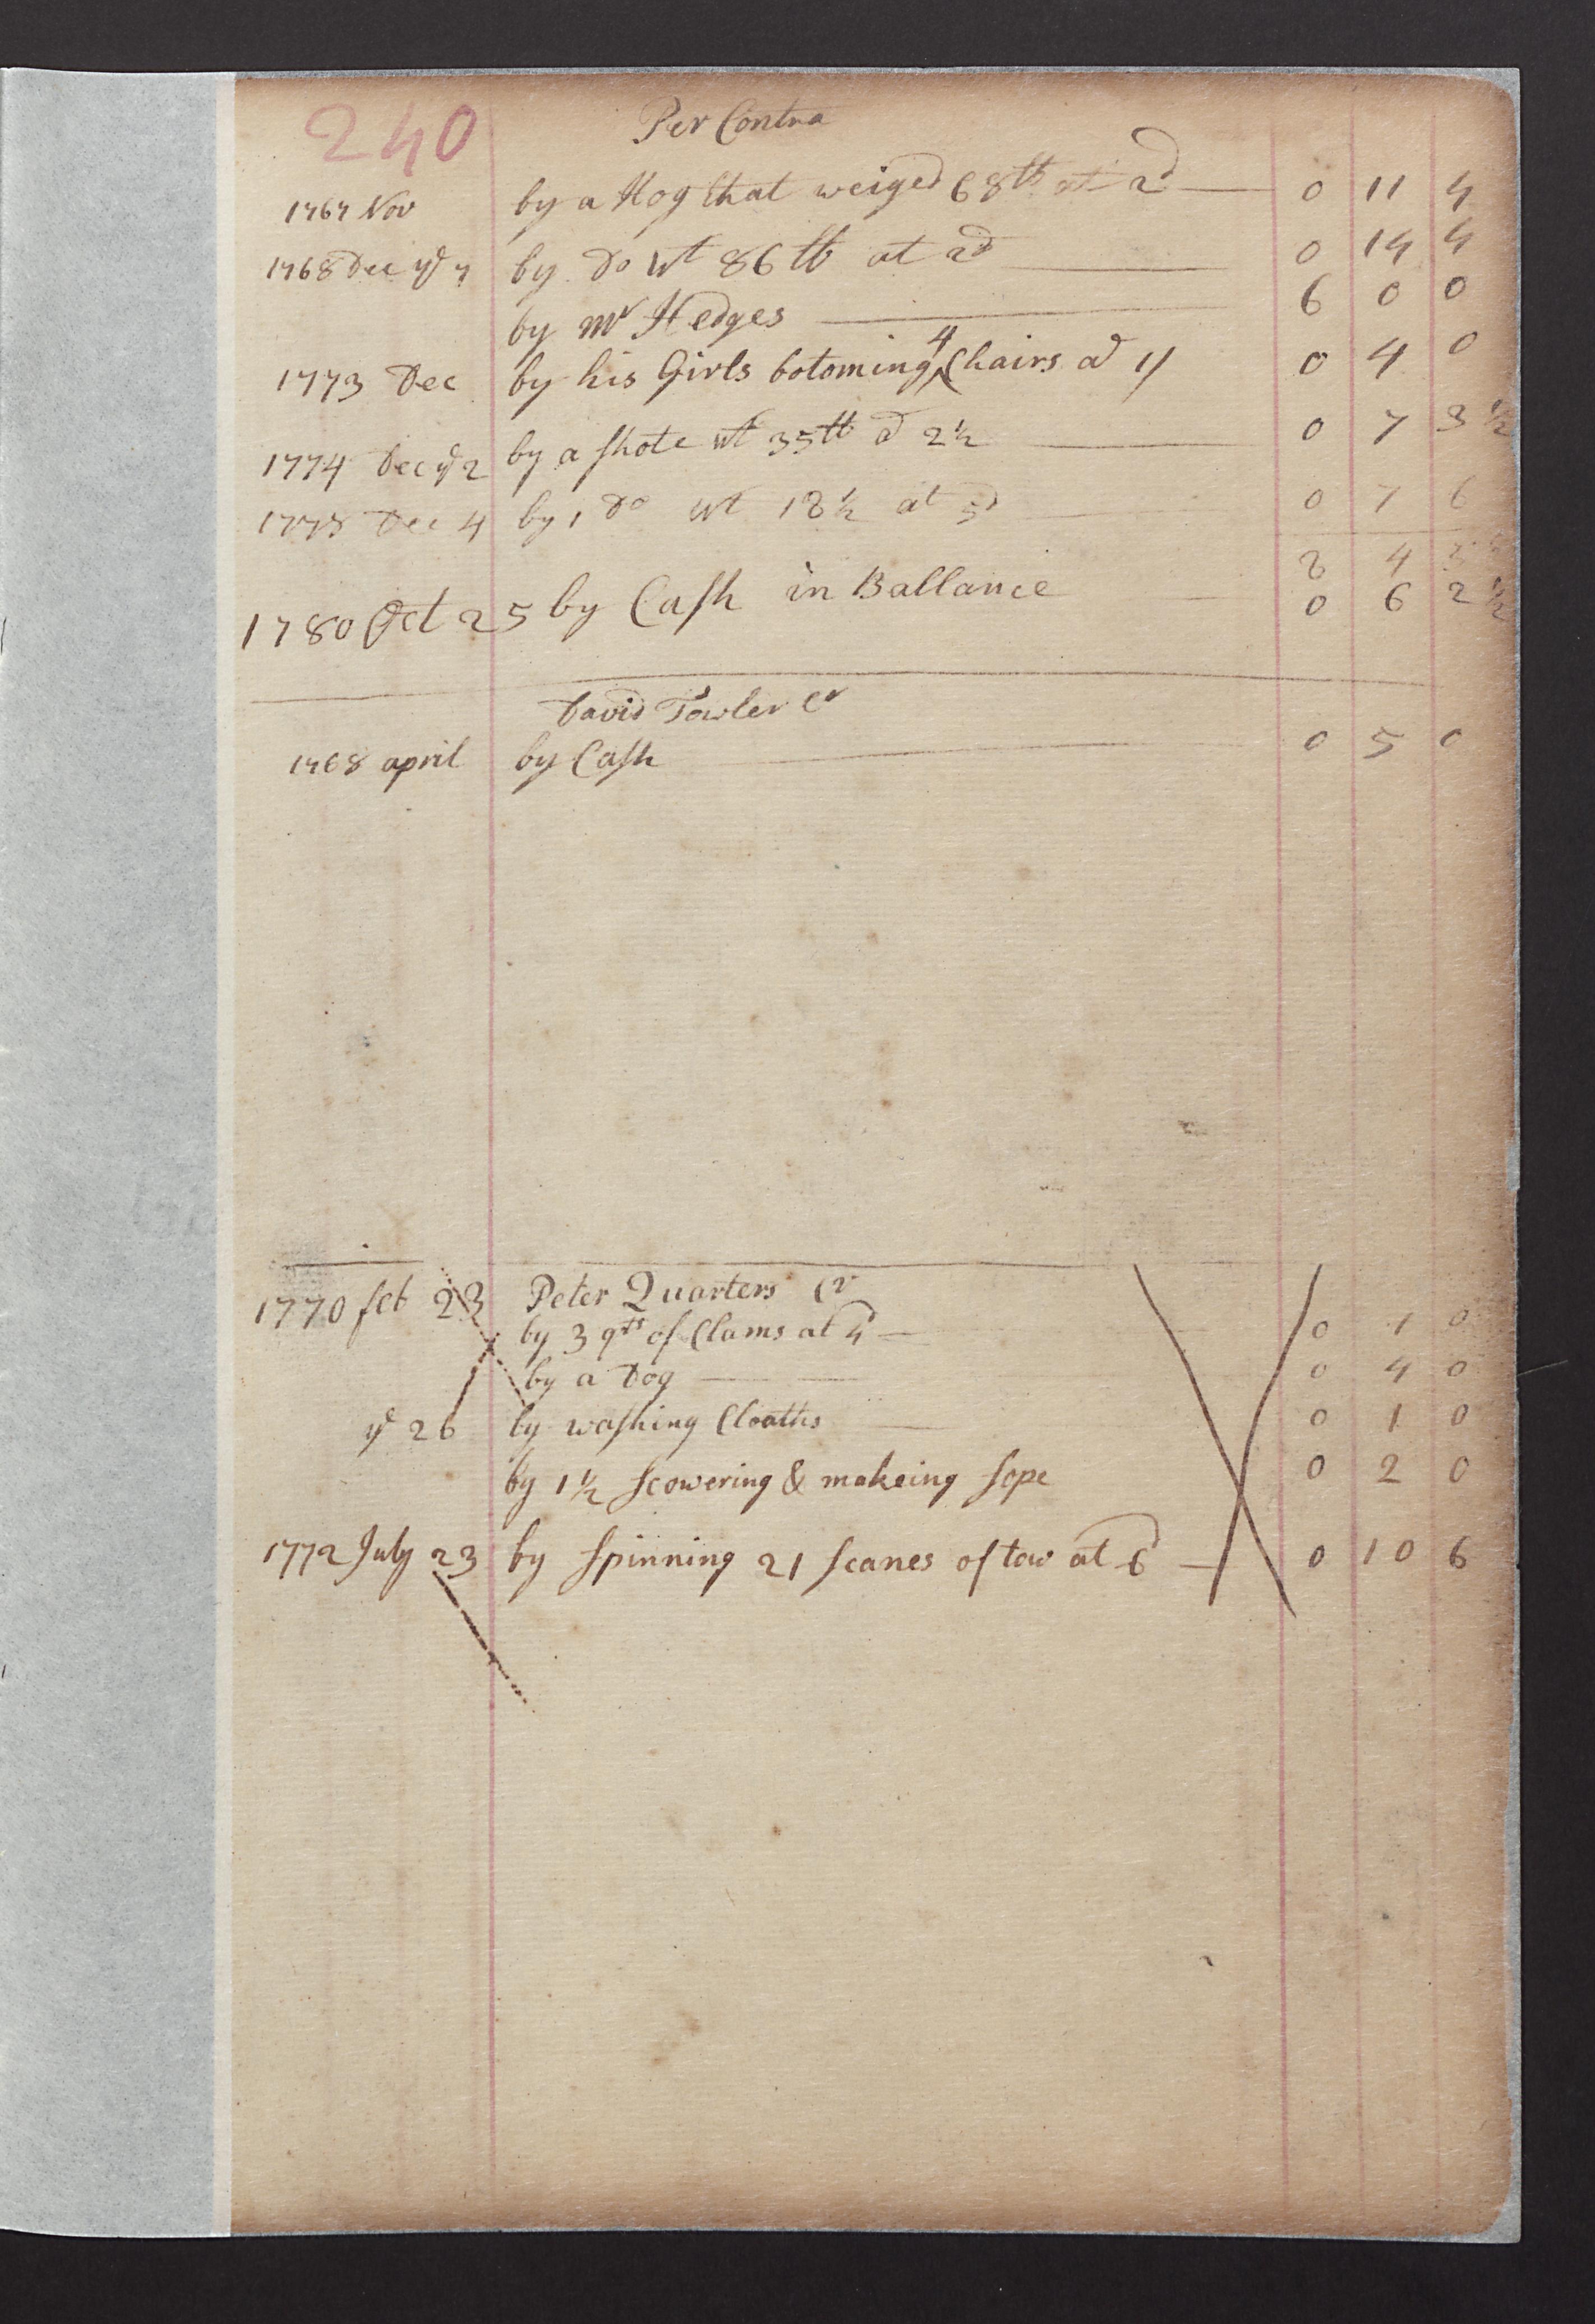 240
Per Contra
1767 Nov by a Hog that weiged 68 lb at 2d 0 11 4
1768 Dec ye 7 by Do wt 86 lb at 2d 0 14 4
by Mr Hedges 6 0 0
1773 Dec by his Girls botoming 4 Chairs a 1/ 0 4 0
1774 Dec ye 2 by a shote wt 35 lb a 2½ 0 7 3½
1775 Dec 4 by 1 Do wt 18½ at 5d 0 7 6
8 4 5
1780 Oct 25 by Cash in Ballance 0 6 2½
David Towler Cr
1768 april by Cash 0 5 0
1770 feb 23 Peter Quarters Cr
by 3 qts of Clams at 4d 0 1 0
by a Dog 0 4 0
ye 26 by washing Cloaths 0 1 0
by 1½ scowering & makeing sope 0 2 0
1772 July 23 by spinning 21 scanes of tow at 6d 0 10 6